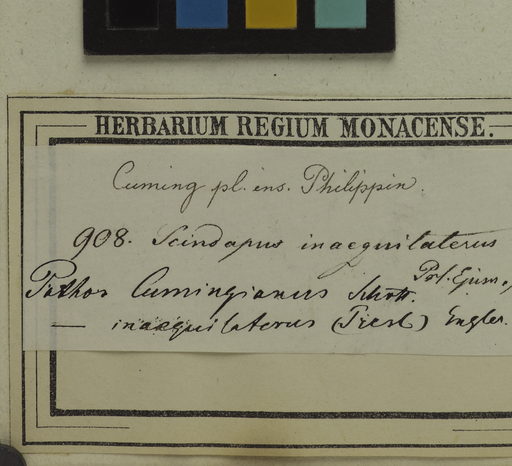 HERBARIUM REGIUM MONACENSE.
Cuming pl. ins. Philippin.
908. Scindapus inaequilaterus
Pothos Cumingianus Schott.
— inaequilaterus (Presl) Engler.